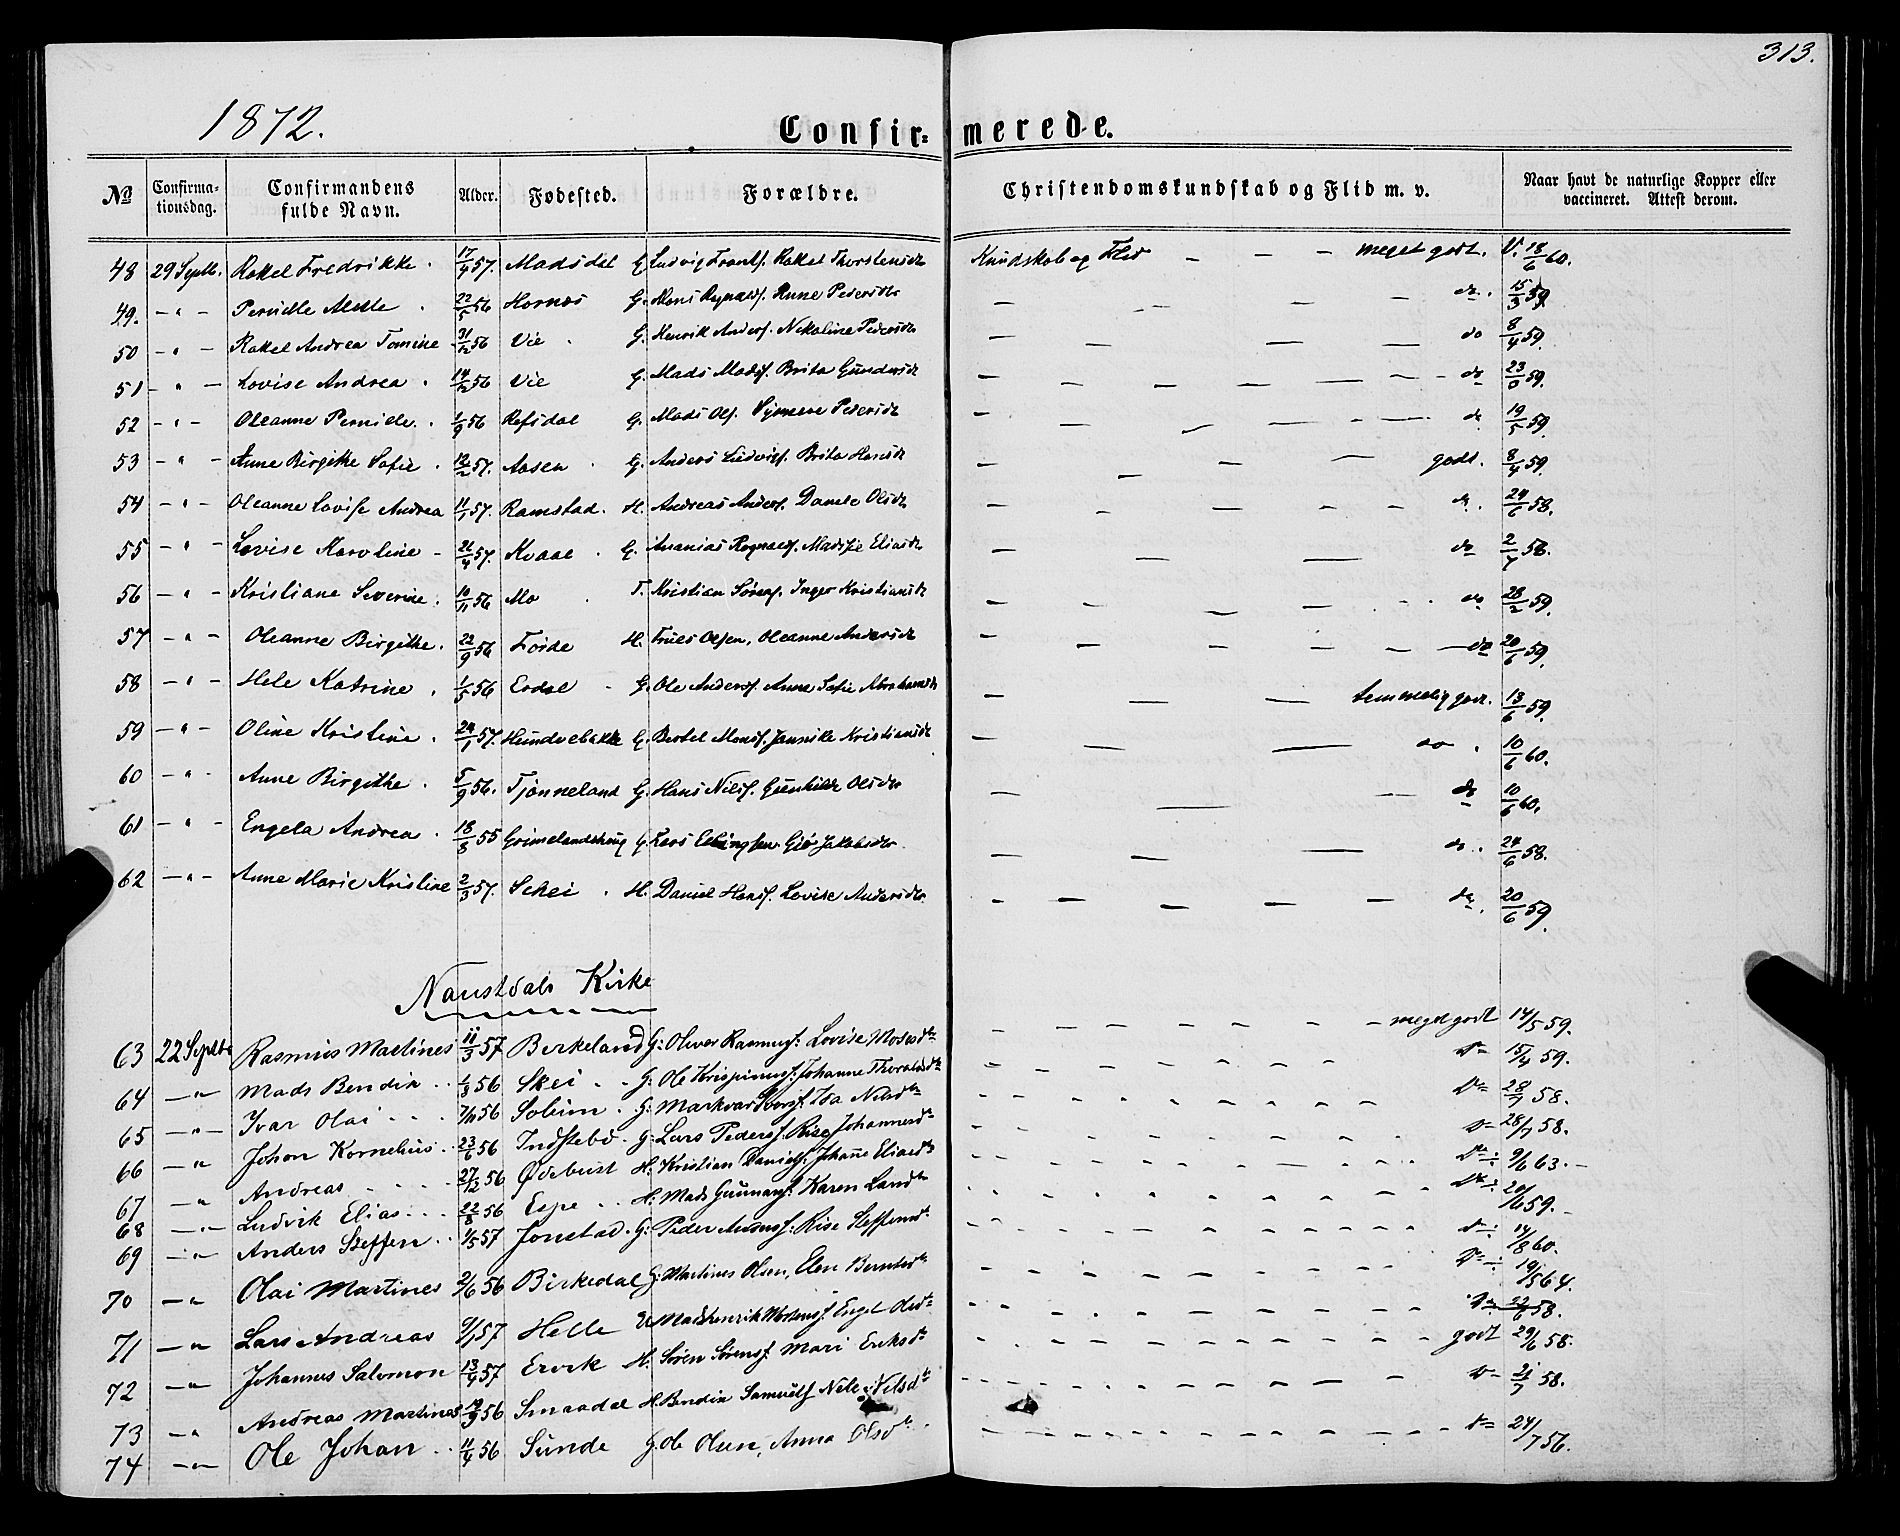 313.
1872.
Confir= merede.
No Confirma=tionsdag. Confirmandens fulde Navn. Alder. Fødested. Forældre. Christendomskundskab og Flid m. v. Naar havt de naturlige Kopper eller vaccineret. Attest derom.
48 29 Septb. Rakel Fredrikke. 17/4 57. Madsdal G. Ludvig Frants. Rakel Thorstensdr Kundskab og Flid — — — meget godt. V. 18/6 60.
49. — " — Pernille Mette. 22/5 56 Hornæs G. Mons Rognalds. Anne Pedersdr — do. 15/3 59.
50 — " — Rakel Andrea Tomine 31/12 56 Vie G. Henrik Anders. Nikoline Pedersdr — do 8/4 59.
51 — " — Lovise Andrea. 14/12 56 Vie G. Mads Mads. Brita Gundersdr — do 59.
52 — " — Oleanne Pernille. 1/9 56 Refsdal G. Mads Ols. Pedersdr — do 19/5 59.
53 — " — Anne Birgithe Sofie. 12/2 57. Aasen G. Anders Ludvigs. Brita Hansdr — godt. 8/4 59.
54 — " — Oleanne Lovise Andrea 11/1 57. Ramstad. H. Andreas Anders. Danele Olsdr — do. 24/6 58.
55 — " — Lovise Karoline - 57. Kvaal. G. Ananias Rognalds. Madsie Eliasdr — do 2/7 58.
56 — " — Kristiane Severine. 10/11 56 Mo T. Kristian Sørens. Inger Kristiansdr — do 28/2 59.
57 — " — Oleanne Birgithe. 22/9 56 Førde H. Truls Olsen, Oleanne Andersdr — do 20/6 59.
58 — " — Hele Katrine. 1/5 56 Erdal - G. Ole Anders. Anne Sofie Abrahamsdr — temmelig godt. 13/6 59.
59 — " — Oline Kristine. 24/1 57. Hundvebakke G. Bertel Mons. Jannike Kristiansdr — do. 10/6 60.
60 — " - Anne Birgithe. 5/9 56. Tjønneland G. Hans Nils. Gunhilde Olsdr — do 10/6 60.
61 — " — Engela Andrea. 18/8 55 Grimelandshaug G. Lars Ellingsen Jakobsdr. — do. 24/6 58.
62 — " — Anne Marie Kristine 2/3 57. Schei. H. Daniel Hans. Lovise Andersdr. — do. 20/6 59.
Naustdals Kirke
63 22 Septbr Rasmus Martines 11/3 57 Birkeland G: Oliver Rasmuss: Lovise Mosesdtr — meget godt 14/5 59.
64 — " Mads Bendik .. 1/3 56 Skei .. G: Ole Krispinus: Johanne Thoraldsdtr — do 15/4 59.
65 — " — Ivar Olai ... 56 Solum. G: Markvard Ivers: Ida Nilsdtr — do 28/7 58.
66 — " Johan Kornelius .. 23/6 56 Indstebø. G: Lars Peders: Rise Johannesdtr — do 28/7 58.
67 — " Andreas .... 27/12 56 Ødebust H: Kristian Daniels: Johanne Eliasdtr — do: 9/6 63. —
68 — " Ludvik Elias ... 22/8 56 Espe .. H: Mads Gunnars: Karen Larsdtr — do: 20/ 59.
69 — " Anders Steffen .. 1/5 57 Jonstad. G: Peder Anders: Rise Steffensdtr — do: 14/8 60.
70 — " Olai Martines 2/6 56 Birkedal G: Martines Olsen, Elen Berntsdtr — do: 19/5 64.
71 — " Lars Andreas 9/1 57 Helle Mads Henrik Mortens: Engel Olsdtr — do 58.
72 — " Johannes Salomon 13/4 57 Ervik H: Søren Sørens: Mari Eriksdtr — godt 29/6 58.
73 — " Andreas Martines 56 Smaadal H. Bendik Samuels Nele Nilsdtr — do 58.
74 — " Ole Johan .. 11/4 56 Sunde G. Ole Olsen, Anna Olsdtr. — do 24/7 56.